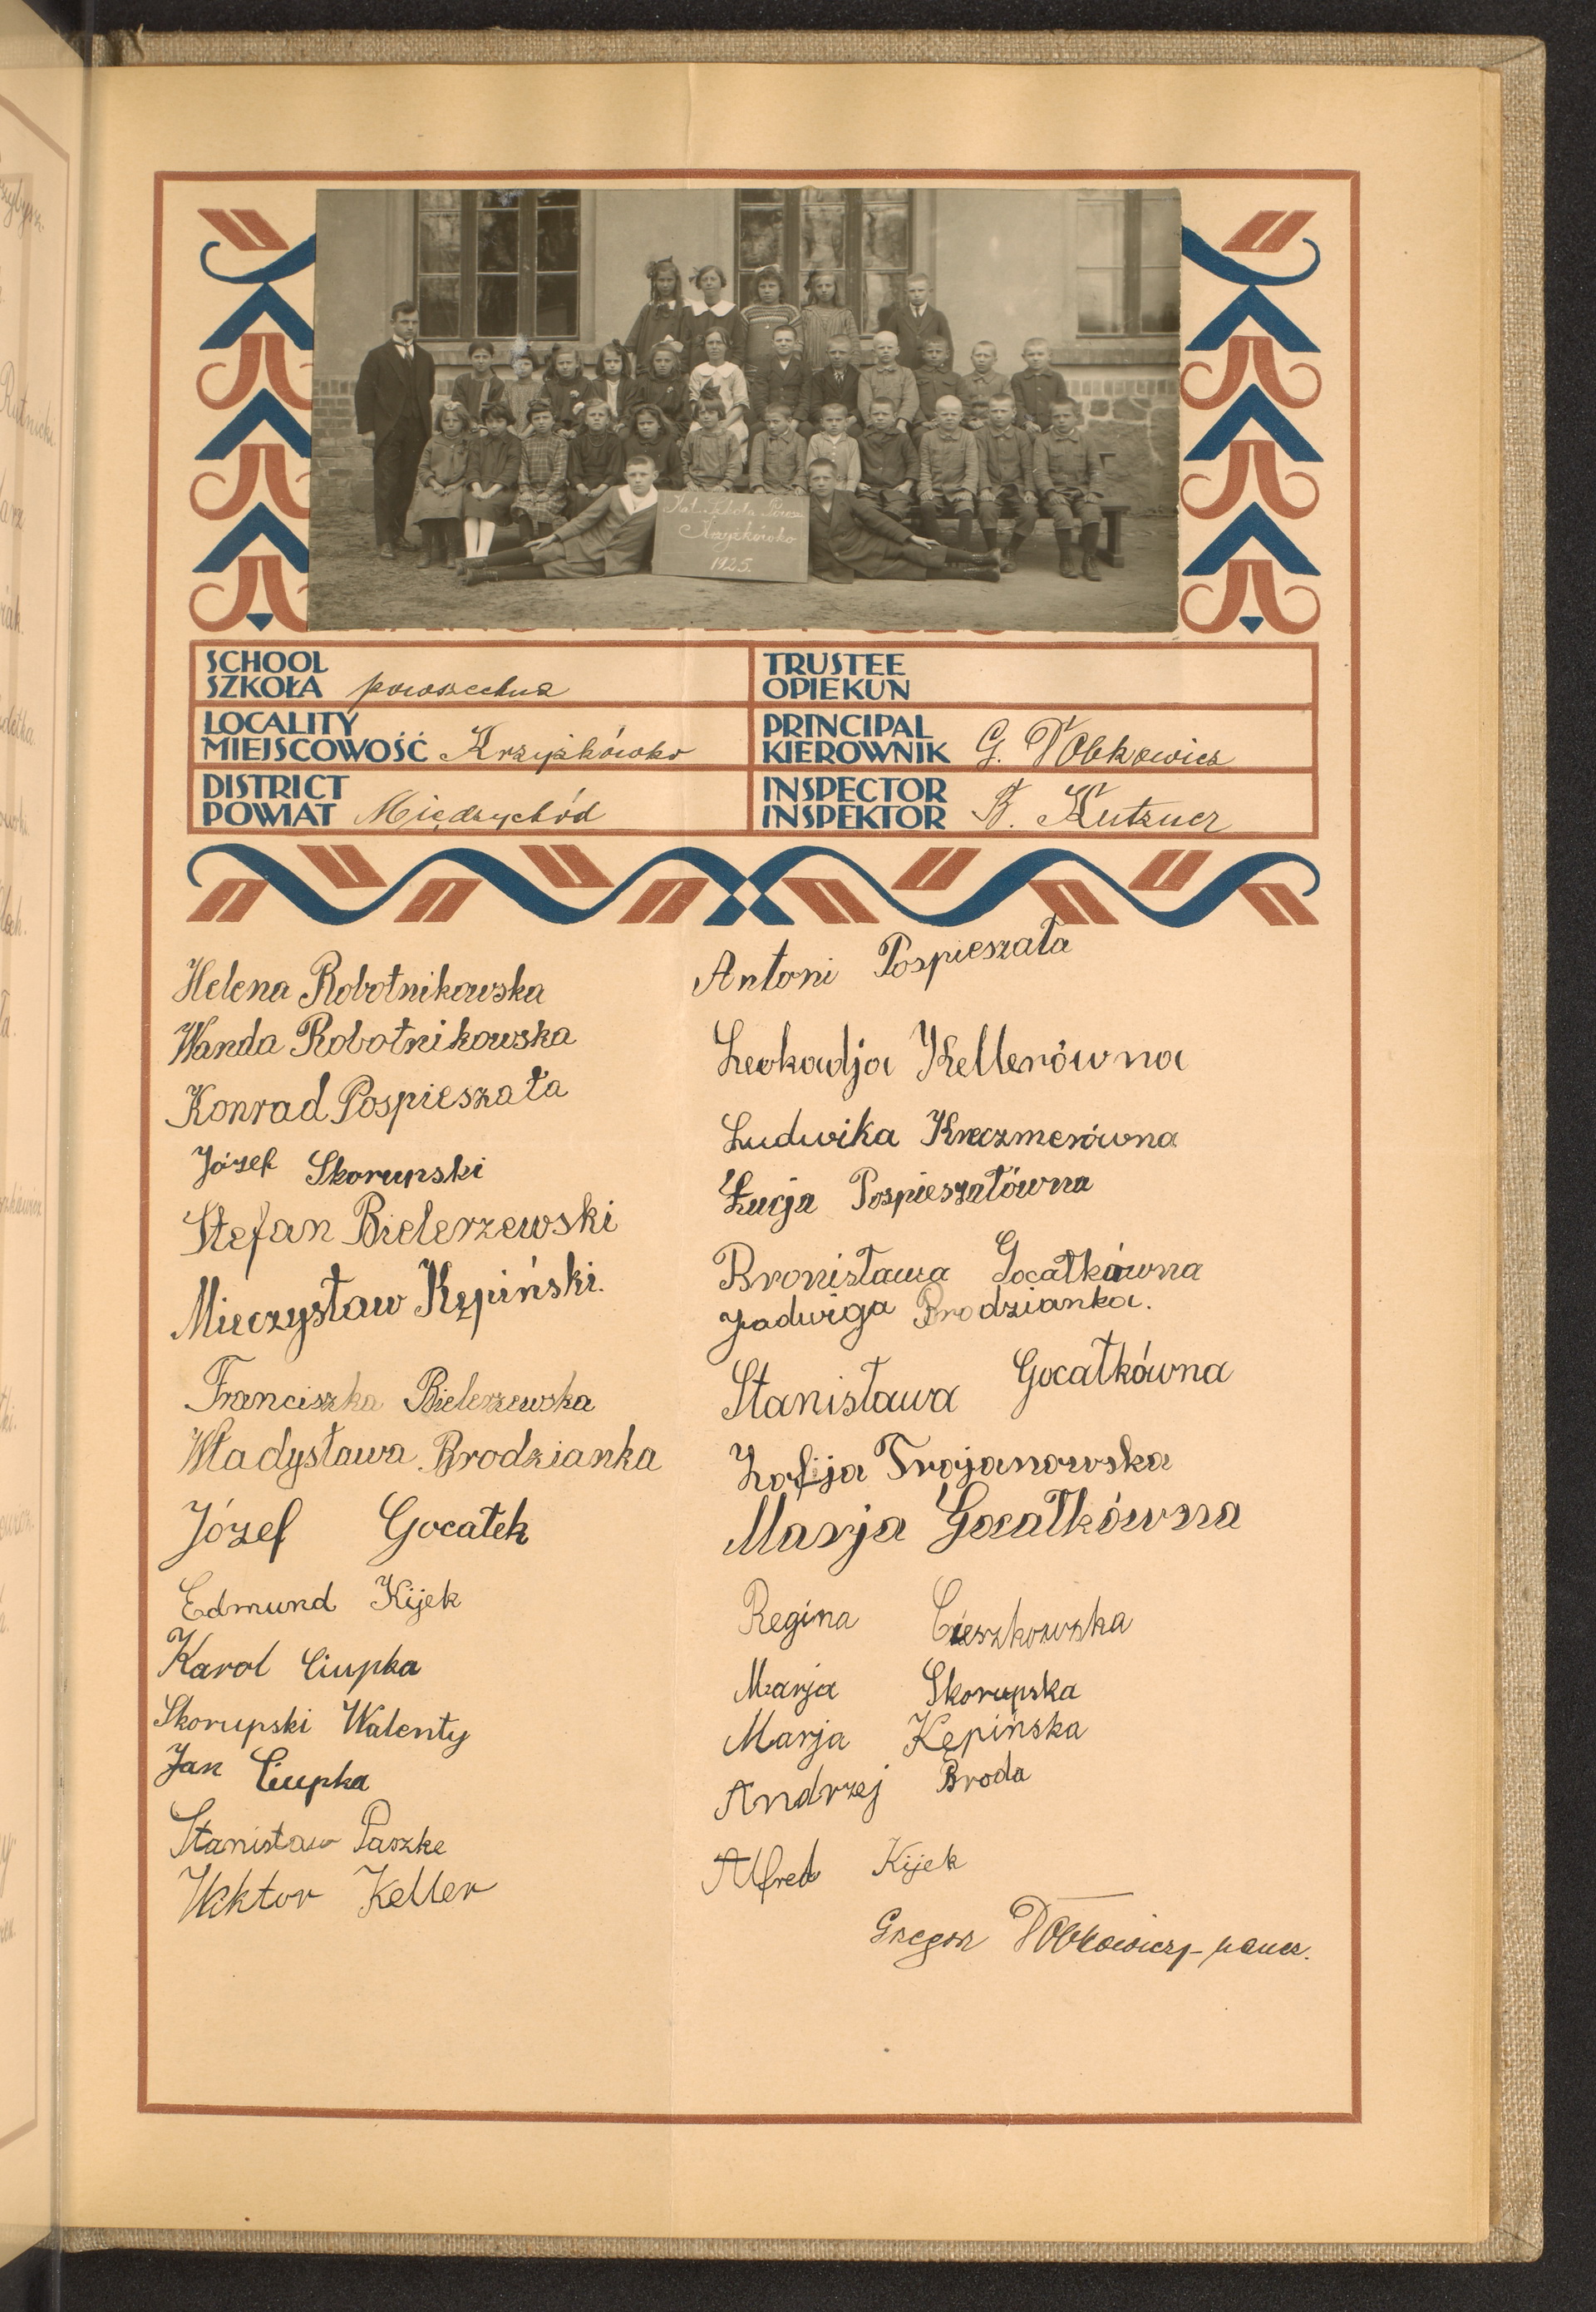 Kat. Szkoła Powsz.
Krzyżkówko
1925.
SCHOOL
SZKOŁA powszechna
TRUSTEE
OPIEKUN
LOCALITY
MIEJSCOWOŚĆ Krzyżkówko
PRINCIPAL
KIEROWNIK G.
DISTRICT
POWIAT Międzychód
INSPECTOR
INSPEKTOR B. Kutzner
Helena Robotnikowska
Wanda Robotnikowska
Konrad Pospieszała
Józef Skorupski
Stefan Bielerzewski
Mieczysław Kępiński.
Franciszka Bielerzewska
Władysława Brodzianka
Józef Gocałek
Edmund Kijek
Karol Ciupka
Skorupski Walenty
Jan Ciupka
Stanisław Paszke
Wiktor Keller
Antoni Pospieszała
Leokadja Kellerówna
Ludwika Kreczmerówna
Łucja Pospieszałówna
Bronisława Gocałkówna
Jadwiga Brodzianka.
Stanisława Gocałkówna
Zofija Trojanowska
Marja Gocałkówna
Regina Cieszkowska
Marja Skorupska
Marja Kępińska
Andrzej Broda
Alfred Kijek